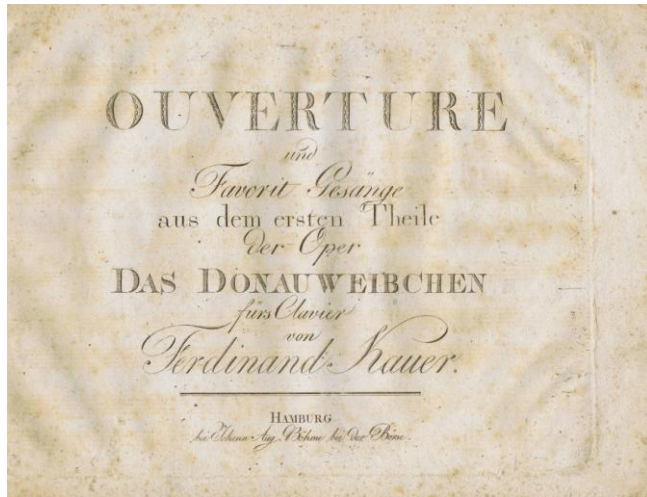 OUVERTURE
und
Favorit Gesänge
aus dem ersten Theile
der Oper
DAS DONAUWEIBCHEN
fürs Clavier
von
Ferdinand Kauer.
HAMBURG
bei Johann Aug. Böhme bei der Börse.